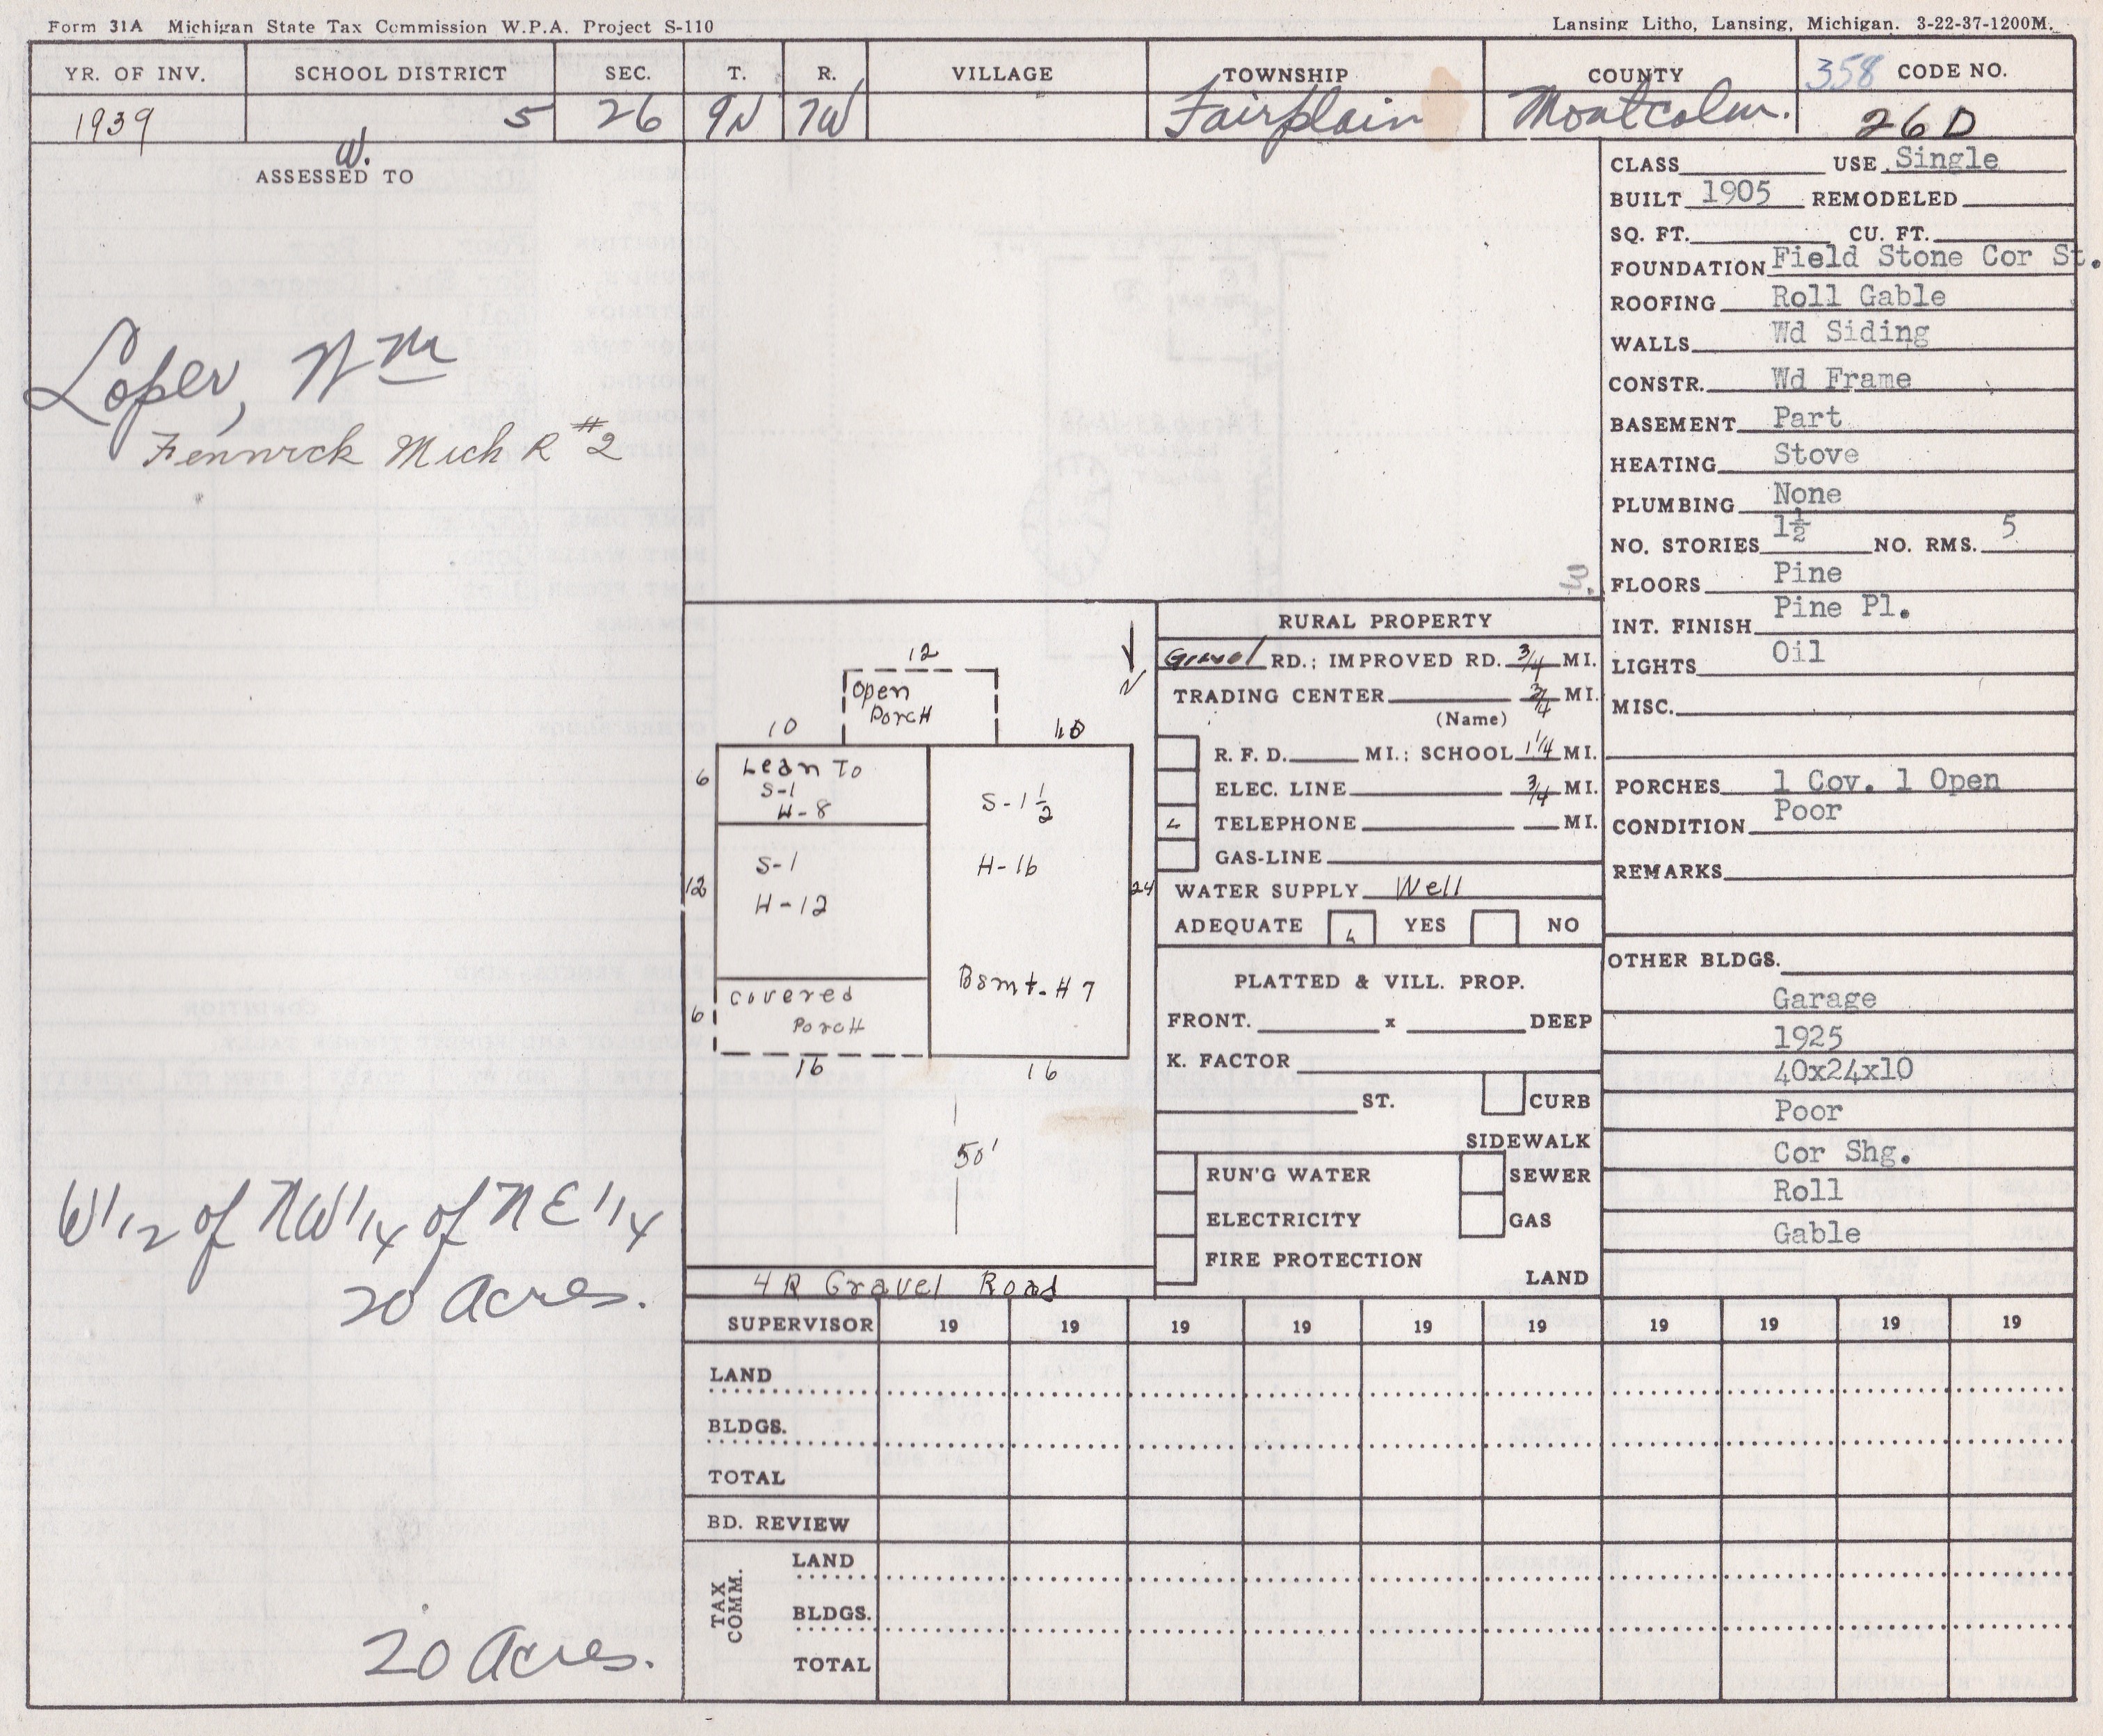 Form 31A Michigan State Tax Commission W.P.A. Project S-110
Lansing Litho, Lansing, Michigan. 3-22-37-1200M.
YR. OF INV. SCHOOL DISTRICT SEC. T. R. VILLAGE TOWNSHIP COUNTY 358 CODE NO.
1939 5 26 9N 7W Fairplain Montcalm. 26D
W.
ASSESSED TO
Loper, Wm
Fenwick Mich R #2
W 1/2 of NW 1/4 of NE 1/4
20 Acres.
20 Acres.
CLASS USE Single
BUILT 1905 REMODELED
SQ. FT. CU. FT.
FOUNDATION Field Stone Cor St.
ROOFING Roll Gable
WALLS Wd Siding
CONSTR. Wd Frame
BASEMENT Part
HEATING Stove
PLUMBING None
NO. STORIES 1½ NO. RMS. 5
FLOORS Pine
INT. FINISH Pine Pl.
LIGHTS Oil
MISC.
PORCHES 1 Cov. 1 Open
CONDITION Poor
REMARKS
OTHER BLDGS.
Garage
1925
40x24x10
Poor
Cor Shg.
Roll
Gable
12
N
Open
Porch
10
10
6
Lean To
S-1
H-8
S-1 1/2
12
S-1
H-12
H-16
24
6
Covered
Porch
Bsmt-H 7
16
16
50'
4 R Gravel Road
RURAL PROPERTY
Gravel RD.: IMPROVED RD. 3/4 MI.
TRADING CENTER 3/4 MI.
(Name)
R. F. D. MI.: SCHOOL 1 1/4 MI.
ELEC. LINE 3/4 MI.
TELEPHONE MI.
GAS-LINE
WATER SUPPLY Well
ADEQUATE YES NO
PLATTED & VILL. PROP.
FRONT. x DEEP
K. FACTOR
ST. CURB
SIDEWALK
RUN'G WATER SEWER
ELECTRICITY GAS
FIRE PROTECTION
LAND
SUPERVISOR 19 19 19 19 19 19 19 19 19 19
LAND
BLDGS.
TOTAL
BD. REVIEW
TAX COMM.
LAND
BLDGS.
TOTAL